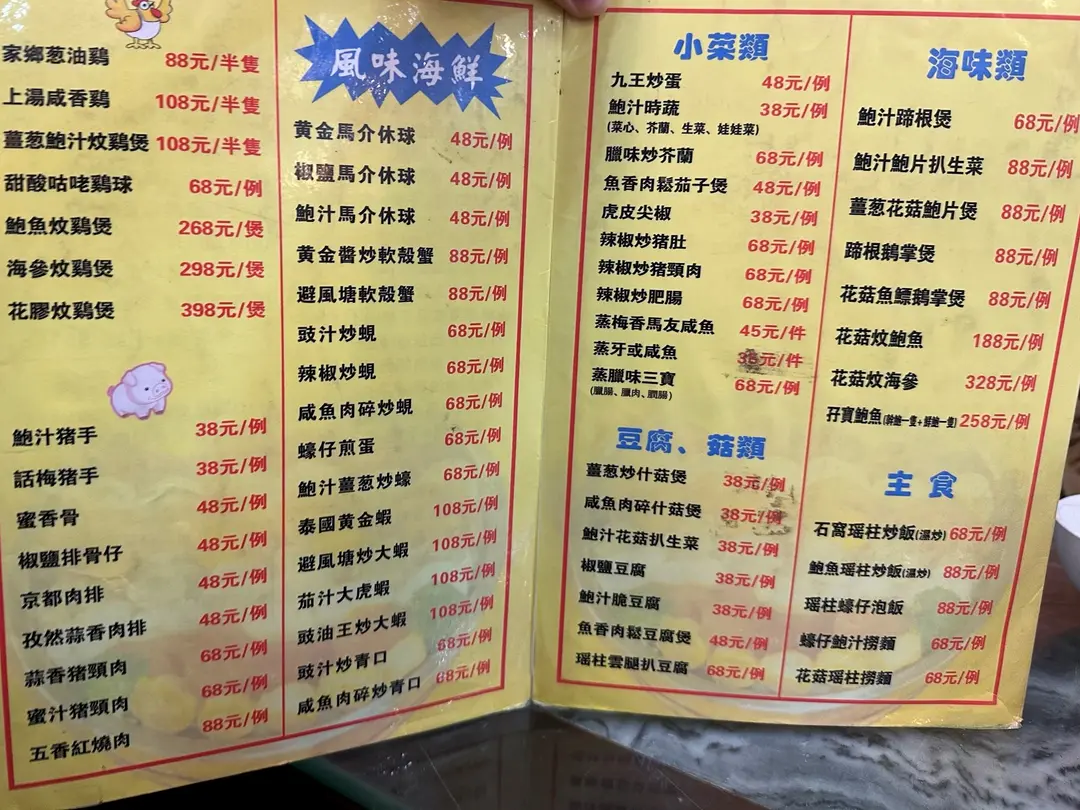 家鄉葱油鷄 88元/半隻
上湯咸香鷄 108元/半隻
薑葱鮑汁炆鷄煲 108元/半隻
甜酸咕咾鷄球 68元/例
鮑魚炆鷄煲 268元/煲
海參炆鷄煲 298元/煲
花膠炆鷄煲 398元/煲
鮑汁猪手 38元/例
話梅猪手 38元/例
蜜香骨 48元/例
椒鹽排骨仔 48元/例
京都肉排 48元/例
孜然蒜香肉排 48元/例
蒜香猪頸肉 68元/例
蜜汁猪頸肉 68元/例
五香紅燒肉 88元/例
風味海鮮
黄金馬介休球 48元/例
椒鹽馬介休球 48元/例
鮑汁馬介休球 48元/例
黄金醬炒軟殼蟹 88元/例
避風塘軟殼蟹 88元/例
豉汁炒蜆 68元/例
辣椒炒蜆 68元/例
咸魚肉碎炒蜆 68元/例
蠔仔煎蛋 68元/例
鮑汁薑葱炒蠔 68元/例
泰國黄金蝦 108元/例
避風塘炒大蝦 108元/例
茄汁大虎蝦 108元/例
豉油王炒大蝦 108元/例
豉汁炒青口 68元/例
咸魚肉碎炒青口 68元/例
小菜類
九王炒蛋 48元/例
鮑汁時蔬 38元/例
(菜心、芥蘭、生菜、娃娃菜)
臘味炒芥蘭 68元/例
魚香肉鬆茄子煲 48元/例
虎皮尖椒 38元/例
辣椒炒猪肚 68元/例
辣椒炒猪頸肉 68元/例
辣椒炒肥腸 68元/例
蒸梅香馬友咸魚 45元/件
蒸牙或咸魚 元/件
蒸臘味三寶 68元/例
(臘腸、臘肉、潤腸)
豆腐、菇類
薑葱炒什菇煲 38元/例
咸魚肉碎什菇煲 38元/例
鮑汁花菇扒生菜 38元/例
椒鹽豆腐 38元/例
鮑汁脆豆腐 38元/例
魚香肉鬆豆腐煲 48元/例
瑶柱雲腿扒豆腐 68元/例
海味類
鮑汁蹄根煲 68元/例
鮑汁鮑片扒生菜 88元/例
薑葱花菇鮑片煲 88元/例
蹄根鵝掌煲 88元/例
花菇魚鰾鵝掌煲 88元/例
花菇炆鮑魚 188元/例
花菇炆海參 328元/例
孖寶鮑魚(幹鮑一隻+鮮鮑一隻) 258元/例
主食
石窩瑶柱炒飯(濕炒) 68元/例
鮑魚瑶柱炒飯(濕炒) 88元/例
瑶柱蠔仔泡飯 88元/例
蠔仔鮑汁撈麵 68元/例
花菇瑶柱撈麵 68元/例